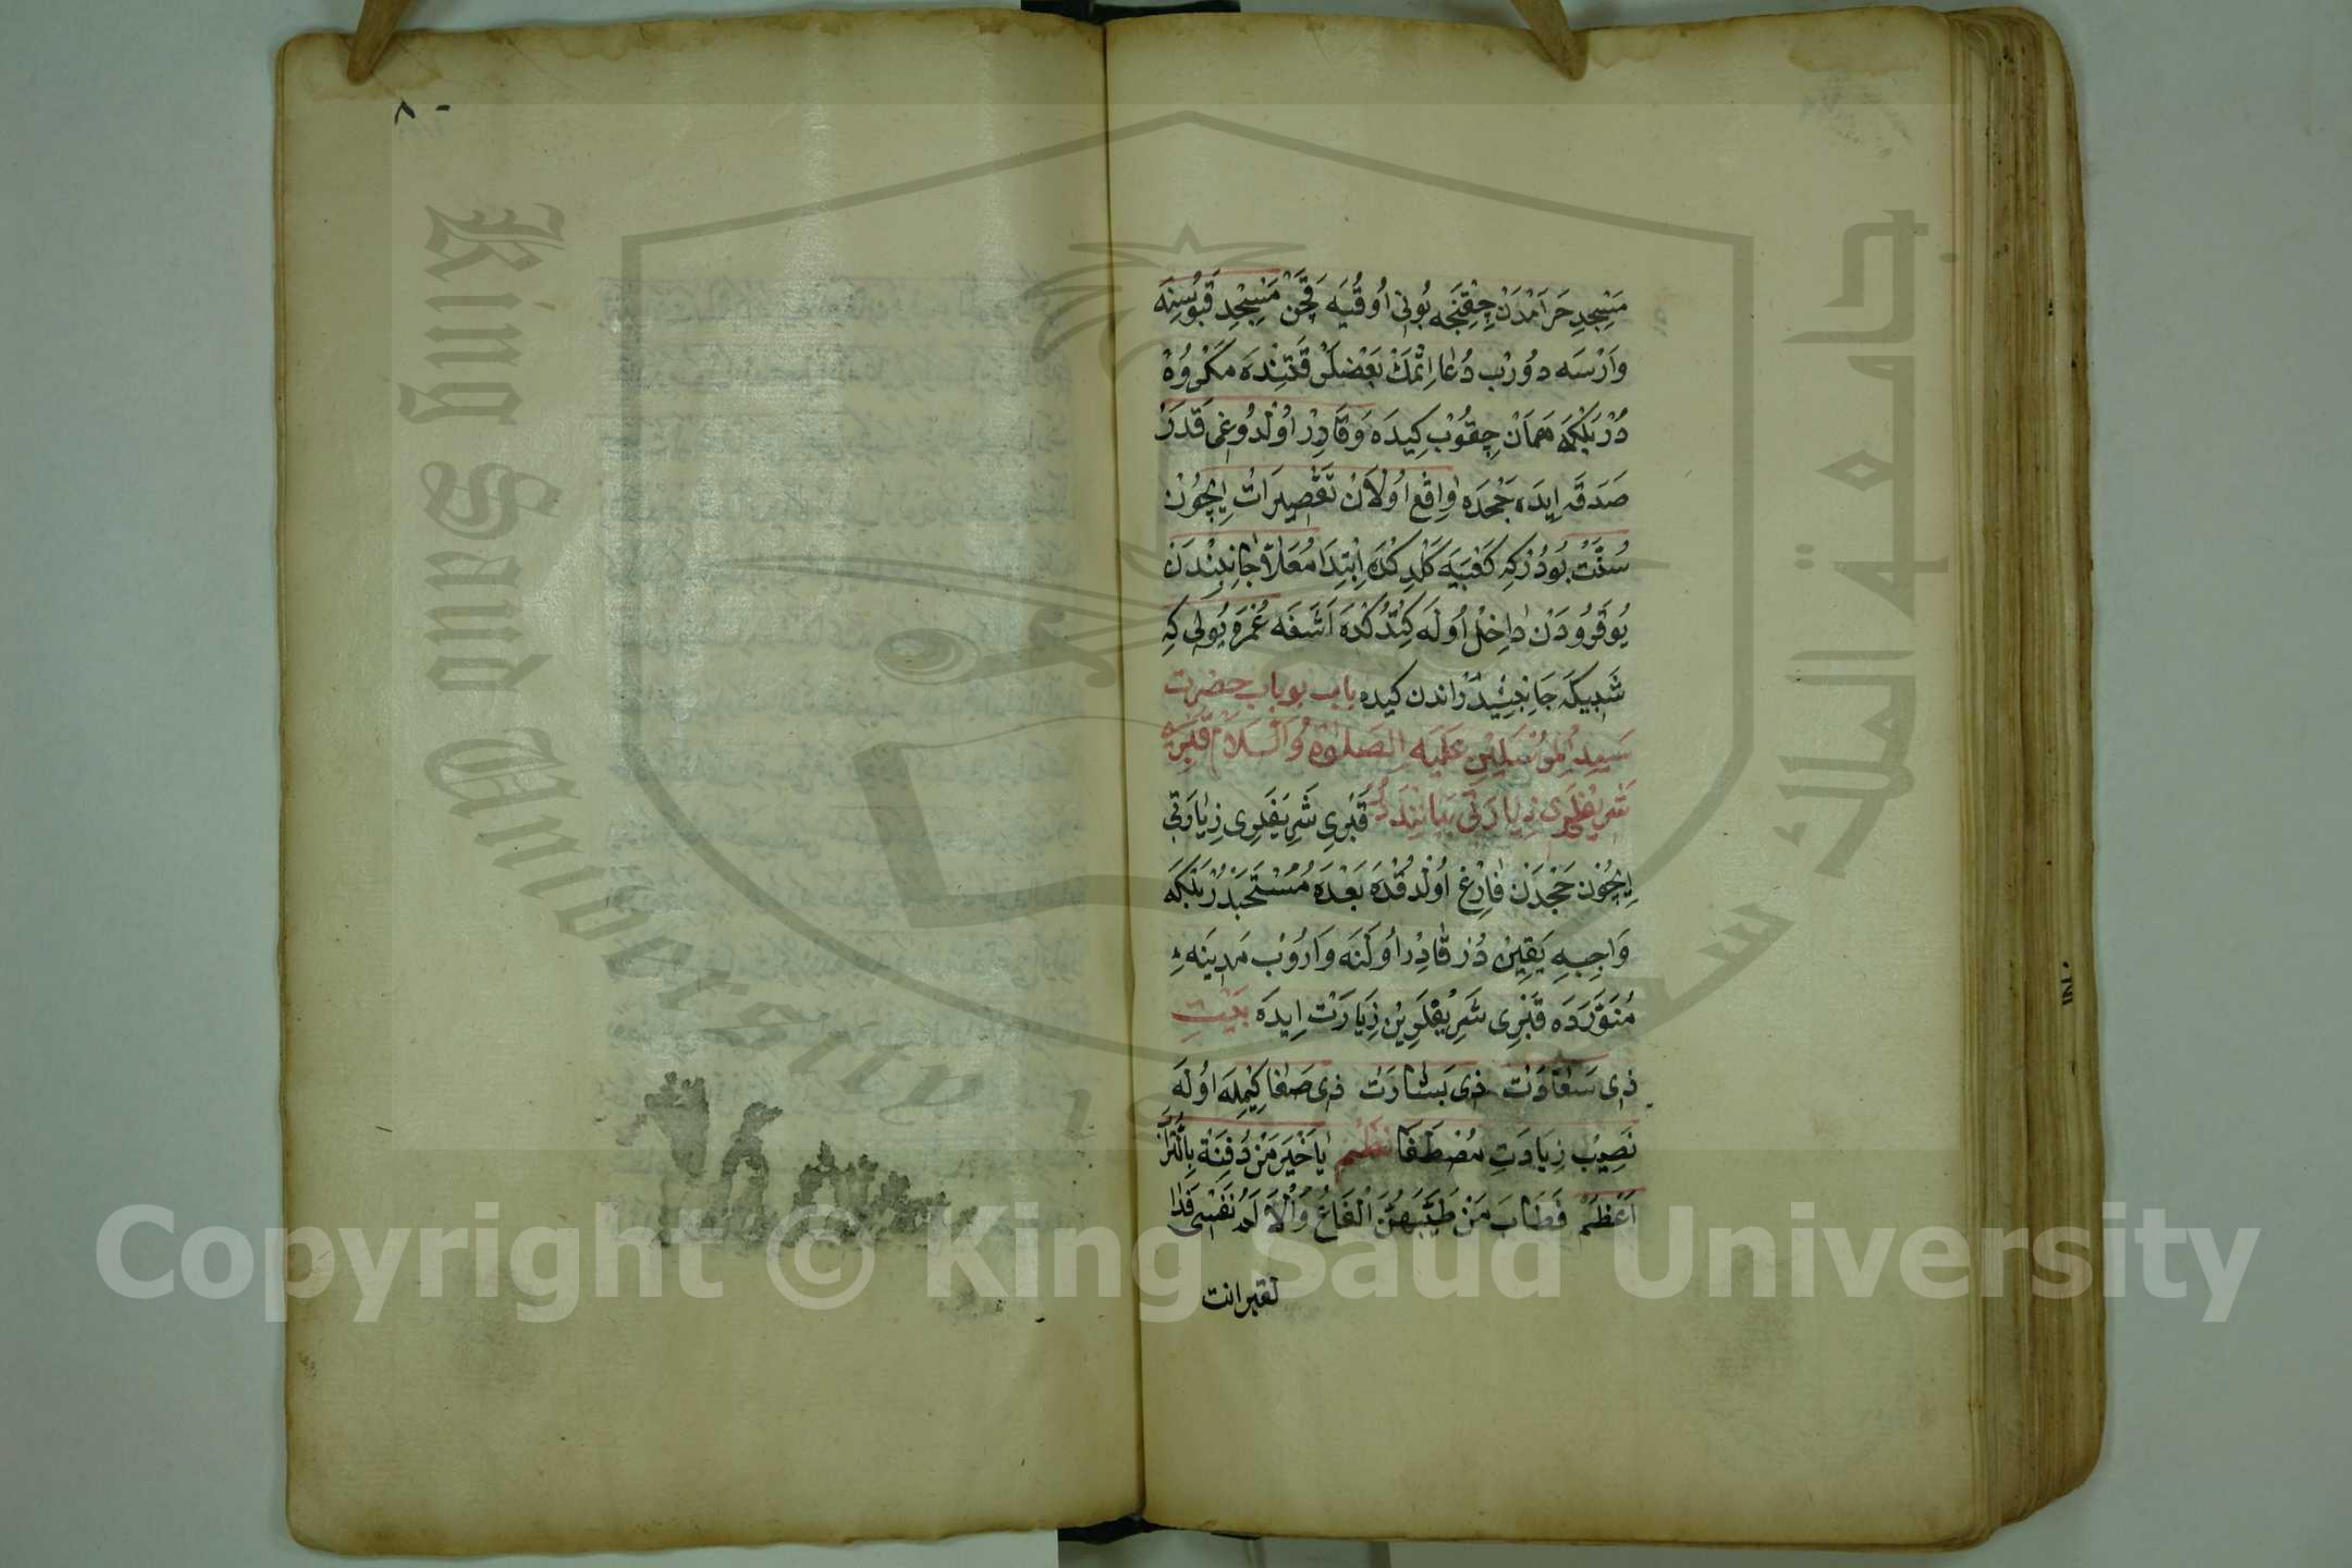 مَسْجِدِ حَرَامْدَنْ چِقِنْجَه بُونِی اُوقُیَه قَچَنْ مَسْجِدِ قَپُوسِنَه
وَارْسَه دُورُبْ دُعَا اِتْمَكْ بَعْضِلَرْ قَتِنْدَه مَكْرُوهْ
دُرْ بَلْكِه هَمَانْ چِقُوبْ كِیدَه وَقَادِرْ اُولْدُوغِی قَدَرْ
صَدَقَه اِیدَه حَجْدَه وَاقِعْ اُولَانْ تَقْصِیرَاتْ اِیچُونْ
سُنَّتْ بُودُرْكِه كَعْبَیَه كَلْدِكْدَه اِبْتِدَا مُعَلَّا جَانِبِنْدَنْ
یُوقَرُودَنْ دَاخِلْ اُولَه كِتْدُكْدَه اَشَغَه عُمْرَه یُولِی كِه
شَبِیكَه جَانِبِیدُرْ اندن كیده باب بو باب حضرت
سَیِدِ الْمُرْسَلِینْ عَلَیْهِ الصَلَوةُ وَالسَلَامْ قَبْرِ
شَرِیفْلَرِی زِیَارَتِی بَیَانِنْدَه دُرْ قَبْرِی شَرِیفَلِرِی زِیَارَتِی
اِیچُونْ حَجْدَنْ فَارِغْ اُولْدُقْدَه بَعْدَه مُسْتَحَبْدُرْ بَلْكَه
وَاجِبِه یَقِینْ دُرْ قَادِرْ اُولَنَه وَارُوبْ مَدِینَه ءِ
مُنَوَّرَدَه قَبْرِی شَرِیفْلَرِینْ زِیَارَتْ اِیدَه بَیْتِ
ذی سَعَادَتْ ذی بَشَارَتْ ذی صَفَا كِیمِلَه اُولَه
نَصِیبْ زِیَارَتِ مُصْطَفَا نَظْمْ یَا خَیْرَ مَنْ دُفِنَتْ بِالتُّرَابْ
اَعْظُمُ فَطَابَ مَنْ طَیَّبَهُنَّ الْقَاعُ وَالْاَكَمُ نَفْسِی فَدَا
لقبرانت
٨٠
King Saud University
جامعة الملك سعود
Copyright © King Saud University